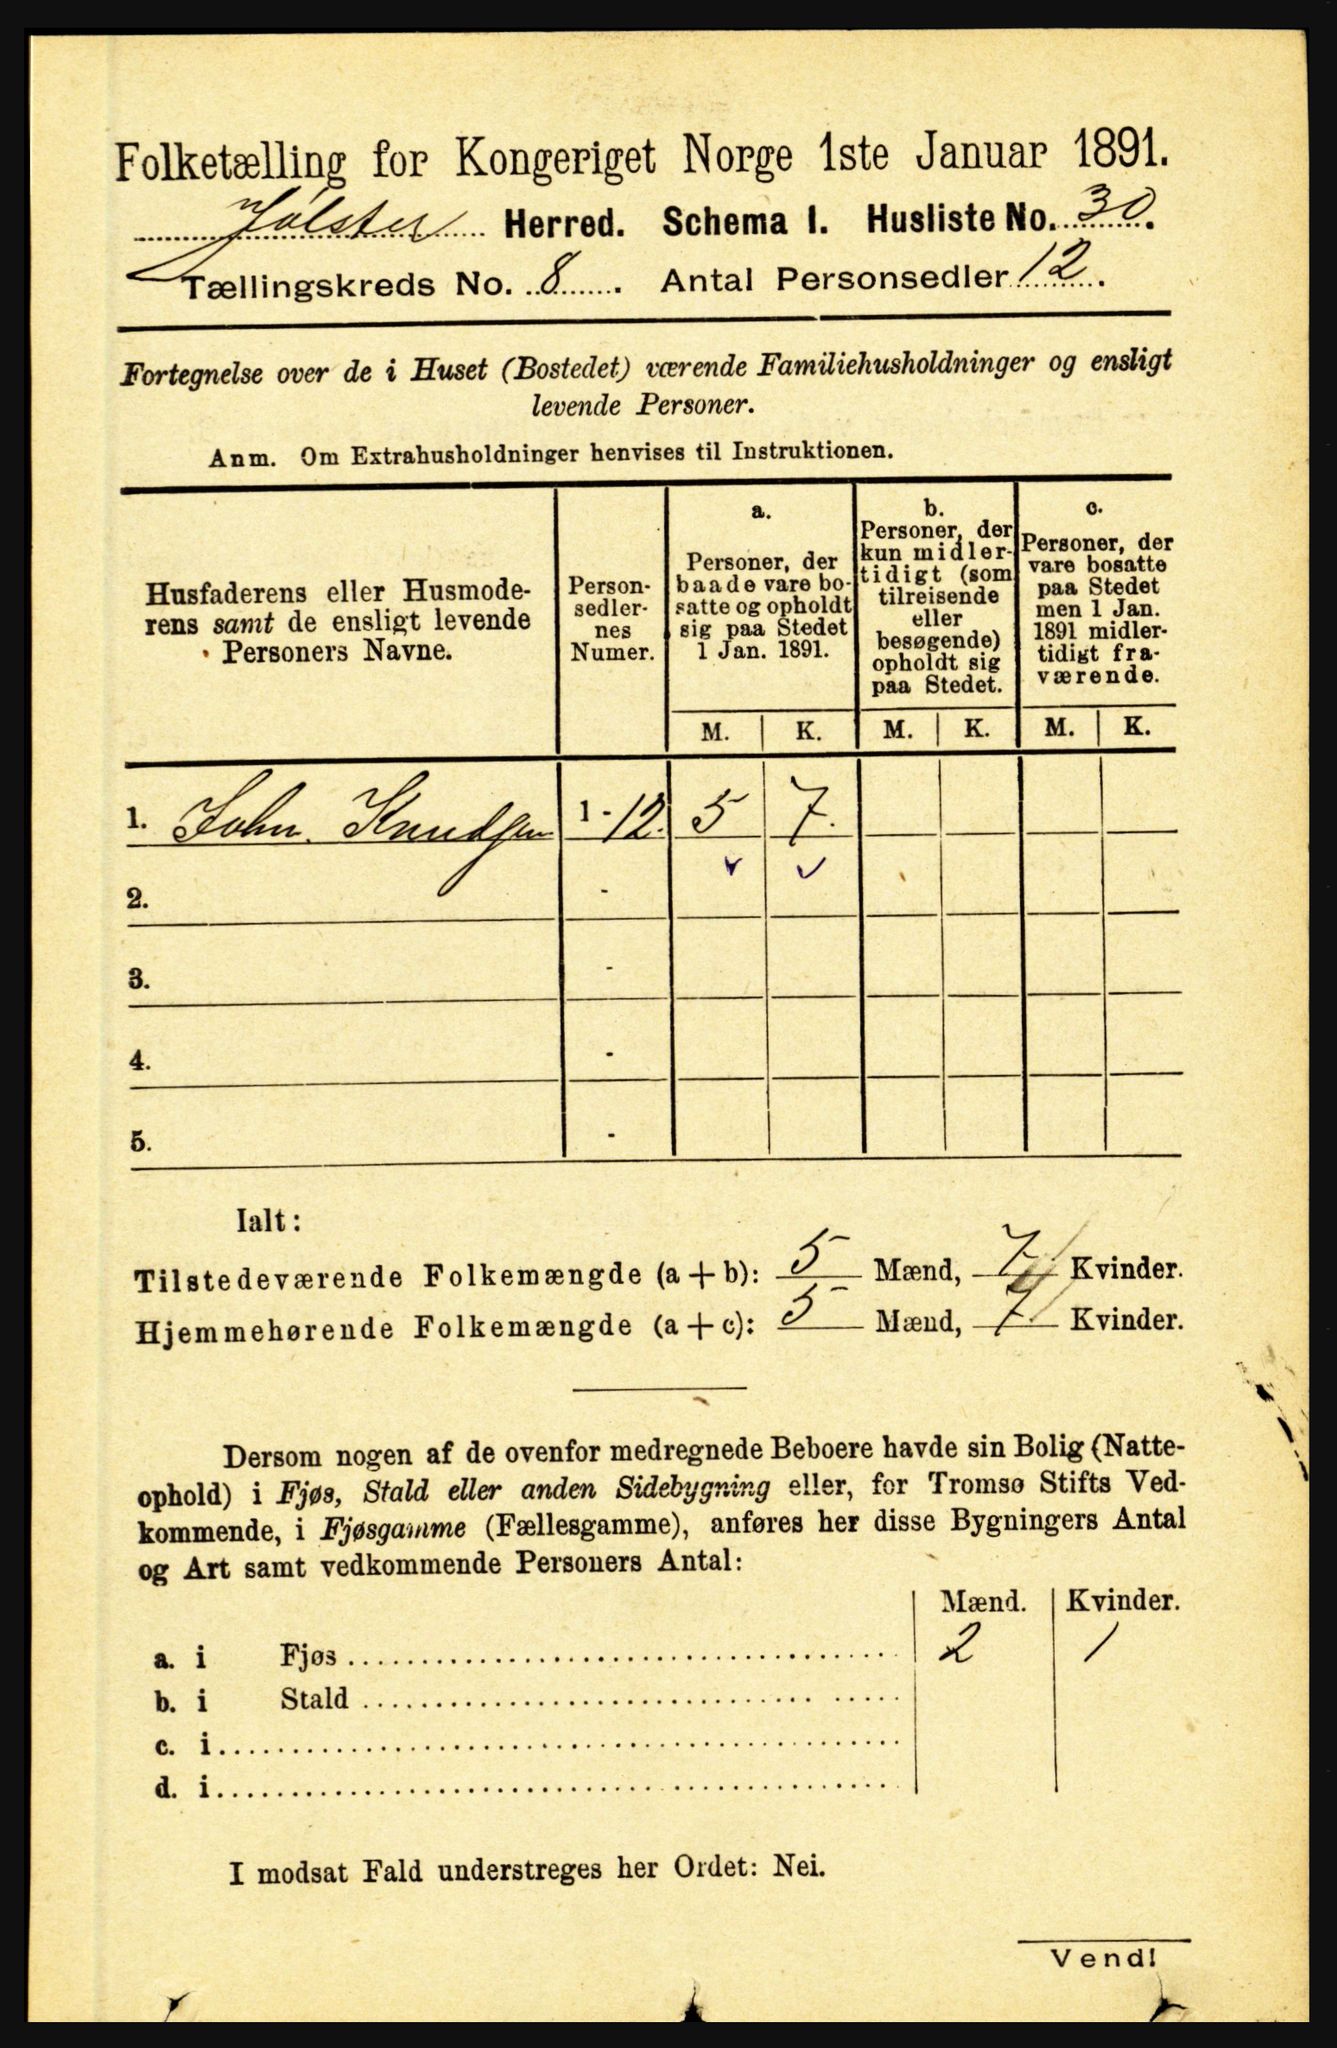 Folketælling for Kongeriget Norge 1ste Januar 1891.
Jølster Herred. Schema I. Husliste No. 30.
Tællingskreds No. 8. Antal Personsedler 12.
Fortegnelse over de i Huset (Bostedet) værende Familiehusholdninger og ensligt
levende Personer.
Anm. Om Extrahusholdninger henvises til Instruktionen.
Husfaderens eller Husmode-
rens samt de ensligt levende
Personers Navne.
Person-
sedler-
nes
Numer.
a.
Personer, der
baade vare bo-
satte og opholdt
sig paa Stedet
1 Jan. 1891.
b.
Personer, der
kun midler-
tidigt (som
tilreisende
eller
besøgende)
opholdt sig
paa Stedet.
c.
Personer, der
vare bosatte
paa Stedet
men 1 Jan.
1891 midler-
tidigt fra-
værende.
M. K. M. K. M. K.
1. John Knudsen 1 - 12. 5 7.
2. -
3. -
4. -
5. -
Ialt:
Tilstedeværende Folkemængde (a + b): 5 Mænd, 7 Kvinder.
Hjemmehørende Folkemængde (a + c): 5 Mænd, 7 Kvinder.
Dersom nogen af de ovenfor medregnede Beboere havde sin Bolig (Natte-
ophold) i Fjøs, Stald eller anden Sidebygning eller, for Tromsø Stifts Ved-
kommende, i Fjøsgamme (Fællesgamme), anføres her disse Bygningers Antal
og Art samt vedkommende Personers Antal:
Mænd. Kvinder.
a. i Fjøs 2 1
b. i Stald
c. i
d. i
I modsat Fald understreges her Ordet: Nei.
Vend!